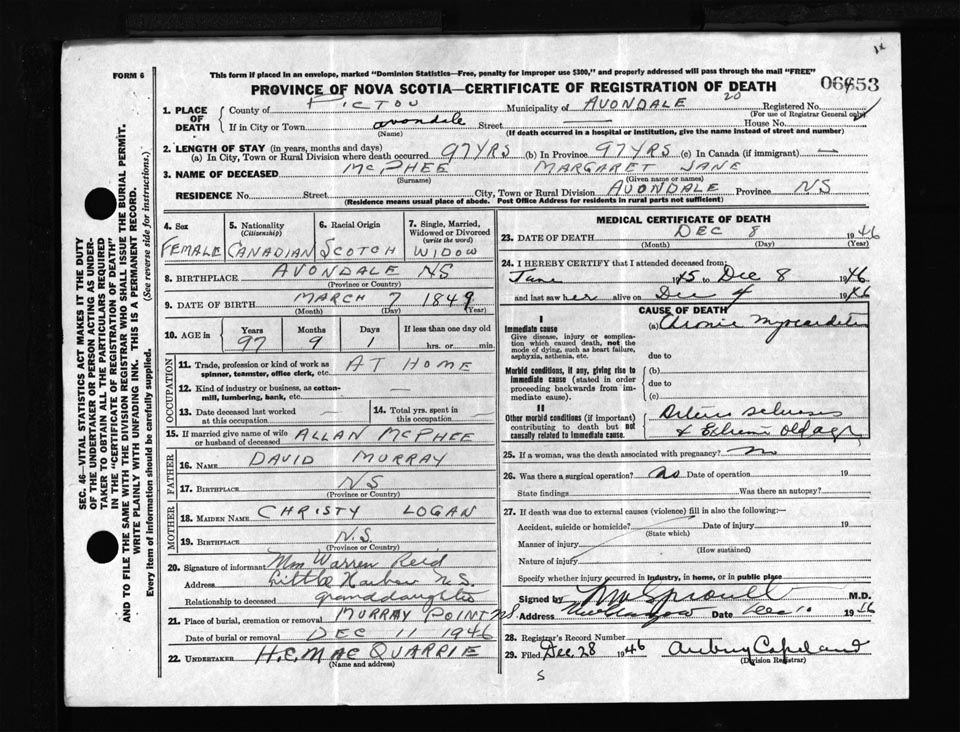 FORM 6
This form if placed in an envelope, marked "Dominion Statistics—Free, penalty for improper use $300," and properly addressed will pass through the mail "FREE"
PROVINCE OF NOVA SCOTIA—CERTIFICATE OF REGISTRATION OF DEATH
1. PLACE OF DEATH
County of PICTOU Municipality of AVONDALE 20 Registered No.
(For use of Registrar General only)
If in City or Town avondale Street — House No.
(Name) (If death occurred in a hospital or institution, give the name instead of street and number)
2. LENGTH OF STAY (in years, months and days)
(a) In City, Town or Rural Division where death occurred 97 YRS (b) In Province 97 YRS (c) In Canada (if immigrant) —
3. NAME OF DECEASED MCPHEE MARGARET JANE
(Surname) (Given name or names)
RESIDENCE No. Street City, Town or Rural Division AVONDALE Province NS
(Residence means usual place of abode. Post Office Address for residents in rural parts not sufficient)
SEC. 46—VITAL STATISTICS ACT MAKES IT THE DUTY
OF THE UNDERTAKER OR PERSON ACTING AS UNDER-
TAKER TO OBTAIN ALL THE PARTICULARS REQUIRED
IN THE "CERTIFICATE OF REGISTRATION OF DEATH"
AND TO FILE THE SAME WITH THE DIVISION REGISTRAR WHO SHALL ISSUE THE BURIAL PERMIT.
WRITE PLAINLY WITH UNFADING INK. THIS IS A PERMANENT RECORD.
Every item of information should be carefully supplied. (See reverse side for instructions.)
4. Sex FEMALE
5. Nationality (Citizenship) CANADIAN
6. Racial Origin SCOTCH
7. Single, Married, Widowed or Divorced (write the word) WIDOW
8. BIRTHPLACE AVONDALE NS
(Province or Country)
9. DATE OF BIRTH MARCH 7 1849
(Month) (Day) (Year)
10. AGE in Years Months Days If less than one day old
97 9 1 hrs. or min.
OCCUPATION
11. Trade, profession or kind of work as spinner, teamster, office clerk, etc. AT HOME
12. Kind of industry or business, as cotton-mill, lumbering, bank, etc. —
13. Date deceased last worked at this occupation —
14. Total yrs. spent in this occupation —
15. If married give name of wife or husband of deceased ALLAN MCPHEE
FATHER
16. NAME DAVID MURRAY
17. BIRTHPLACE NS
(Province or Country)
MOTHER
18. MAIDEN NAME CHRISTY LOGAN
19. BIRTHPLACE N.S.
(Province or Country)
20. Signature of informant Warren Reid
Address Little Harbour N.S.
Relationship to deceased granddaughter
21. Place of burial, cremation or removal MURRAY POINT NS
Date of burial or removal DEC 11 1946
22. UNDERTAKER H.C. MACQUARRIE
(Name and address)
MEDICAL CERTIFICATE OF DEATH
23. DATE OF DEATH DEC 8 1946
(Month) (Day) (Year)
24. I HEREBY CERTIFY that I attended deceased from:
June 1945 to Dec 8 1946
and last saw her alive on Dec 4 1946
CAUSE OF DEATH
I
Immediate cause
Give disease, injury or complication which caused death, not the mode of dying, such as heart failure, asphyxia, asthenia, etc.
(a) Cronic Myocarditis
due to
Morbid conditions, if any, giving rise to immediate cause (stated in order proceeding backwards from immediate cause).
(b)
due to
(c)
II
Other morbid conditions (if important) contributing to death but not causally related to immediate cause.
Arterio sclerosis
& Extreme old age
25. If a woman, was the death associated with pregnancy? no
26. Was there a surgical operation? no Date of operation 19
State findings Was there an autopsy?
27. If death was due to external causes (violence) fill in also the following:—
Accident, suicide or homicide? Date of injury 19
(State which)
Manner of injury
(How sustained)
Nature of injury
Specify whether injury occurred in industry, in home, or in public place
Signed by Sproull M.D.
Address New Glasgow Date Dec 10 1946
28. Registrar's Record Number
29. Filed Dec. 28 1946 Aubrey Copeland
(Division Registrar)
S